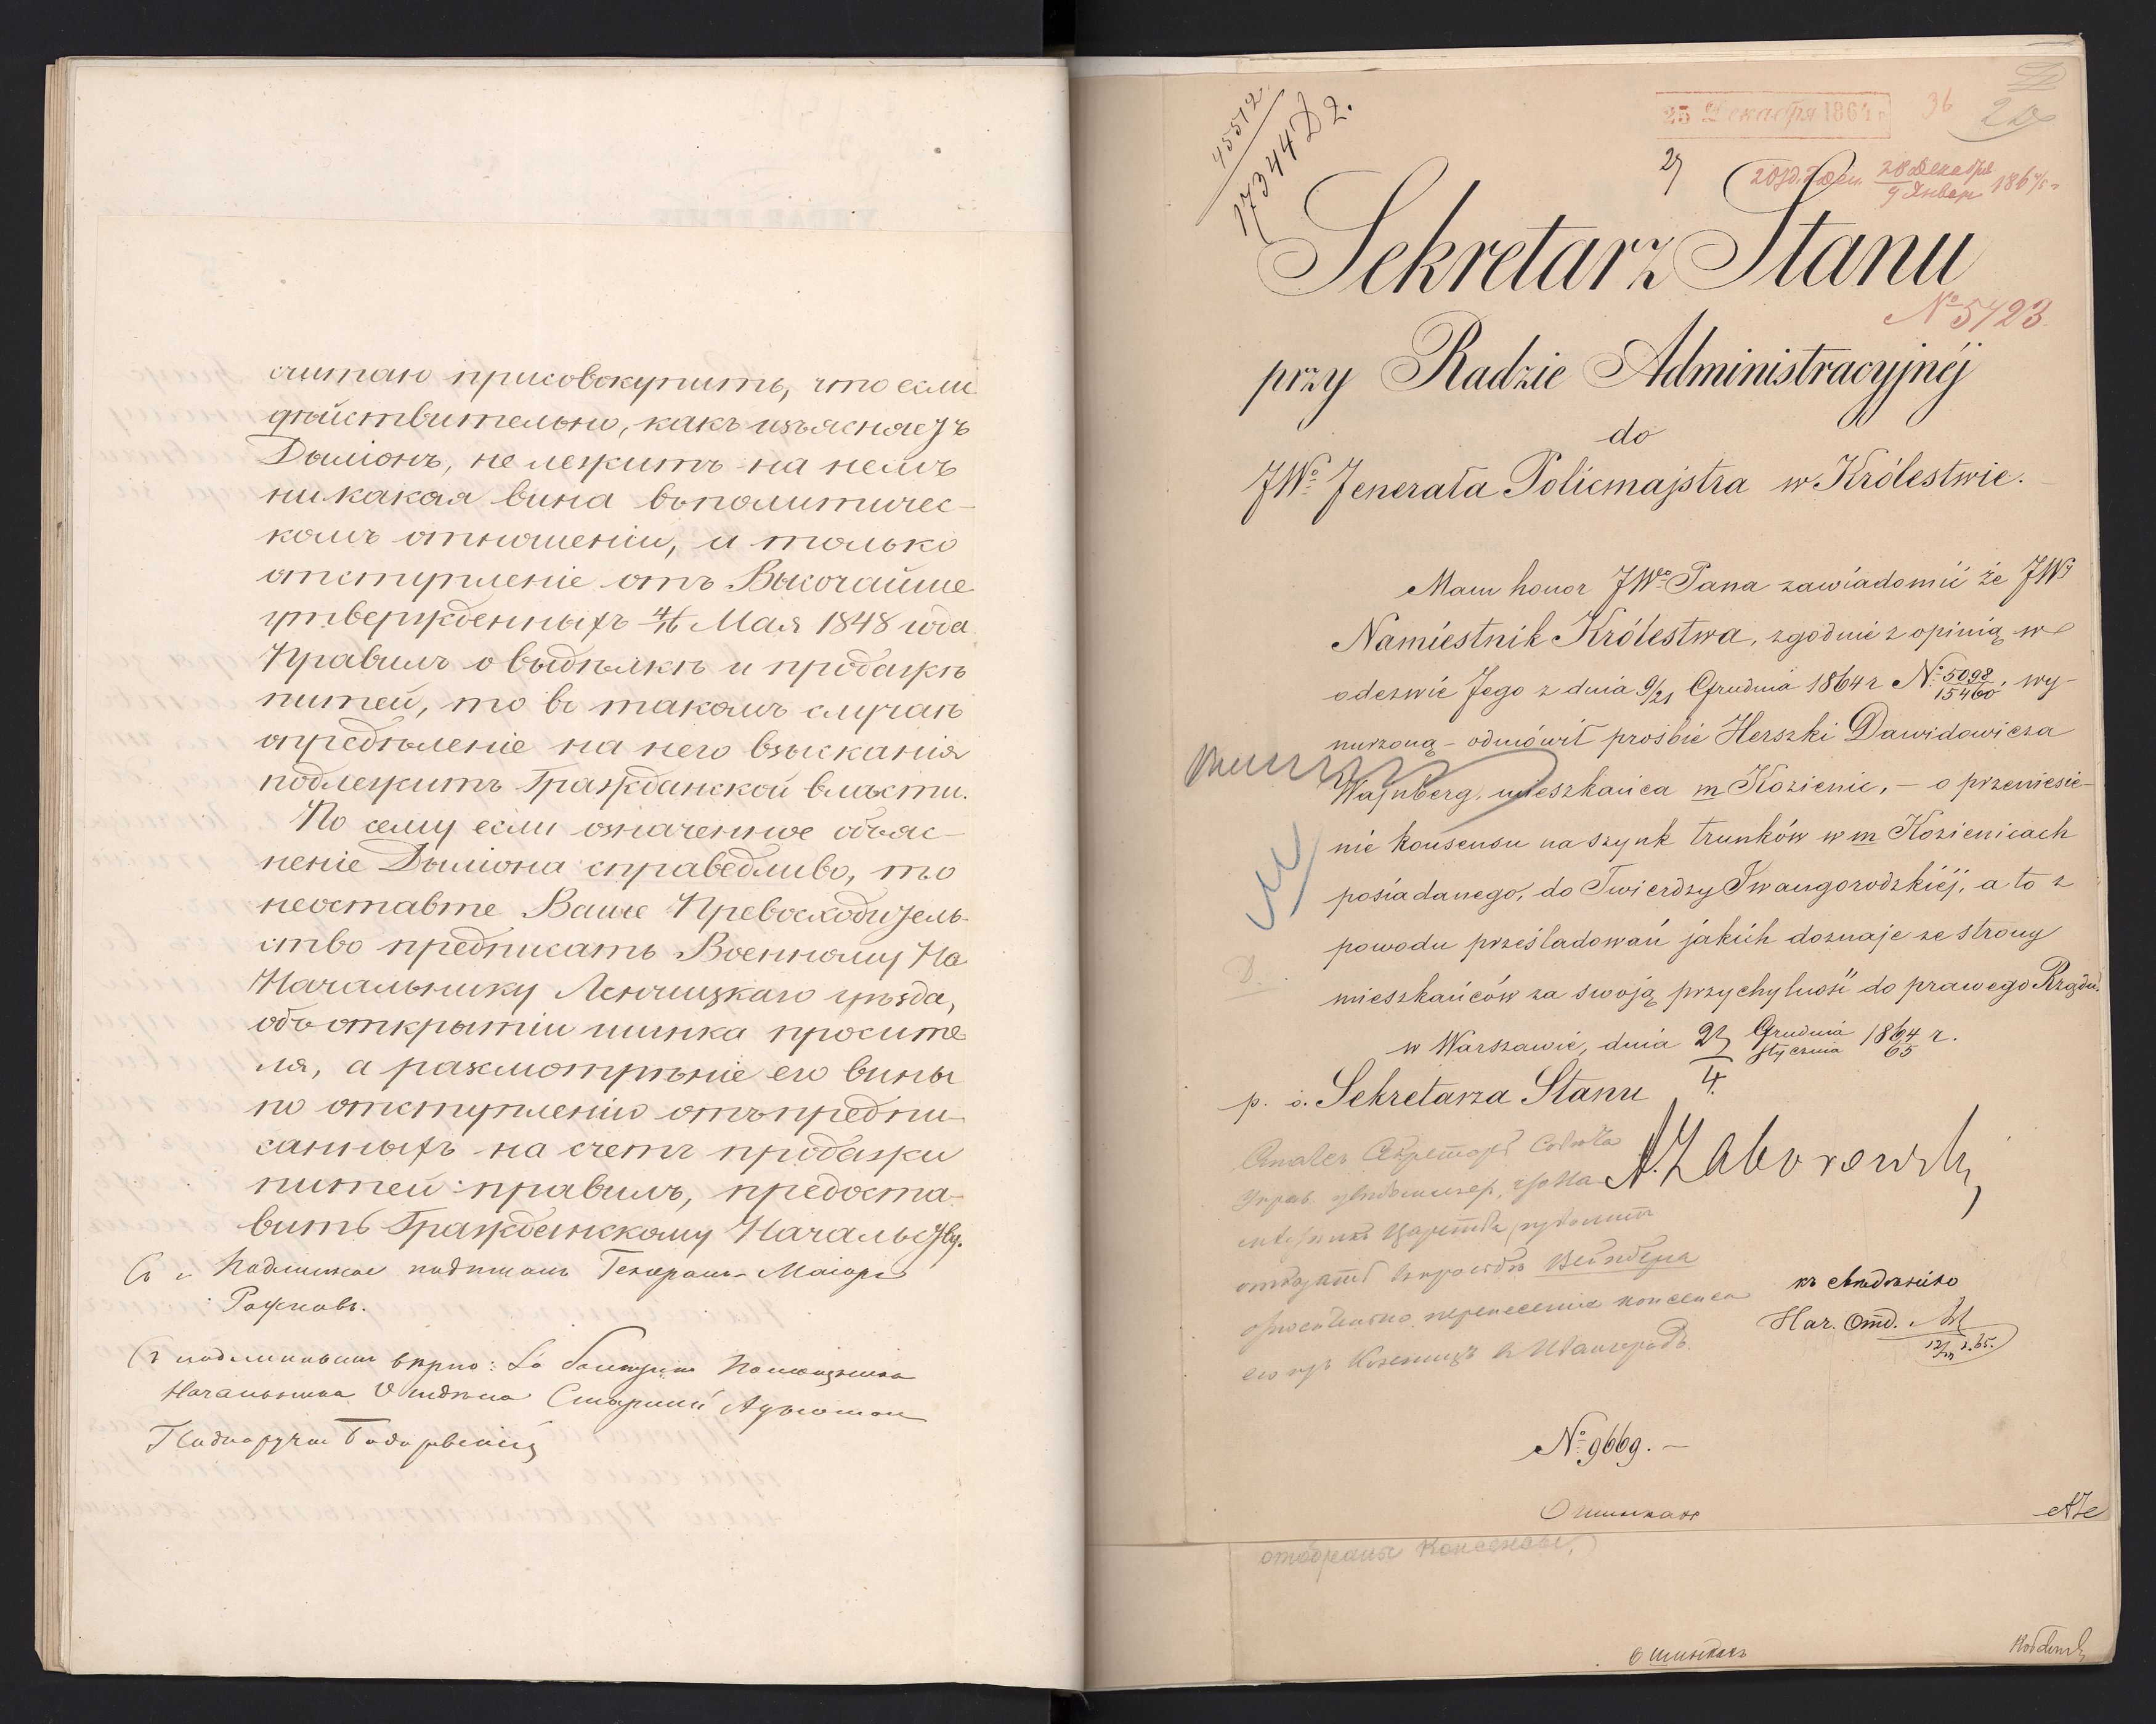 считаю присовокупить, что если
действительно, какъ изъясняетъ
Дышіонъ, не лежитъ на немъ
никакая вина въ политичес-
комъ отношеніи, и только
отступленіе отъ Высочайше
утвержденныхъ 4/16 Мая 1848 года
Правилъ о выдѣлкѣ и продажѣ
питей, то въ такомъ случаѣ
опредѣленіе на него взысканія
подлежитъ Гражданской власти.
По сему если означенное объяс-
неніе Дышіона справедливо, то
неоставте Ваше Превосходитель-
ство предписать Военному На
Начальнику Ленчицкаго уѣзда,
объ открытіи шинка просите
ля, а разсмотрѣніе его вины
по отступленію отъ предпи-
санныхъ на счетъ продажи
питей правилъ, предоста-
вить Гражданскому Начальству.
Подлинное подписалъ Генералъ-Маіоръ
Рожновъ.
Съ подлиннымъ вѣрно: За Помощника
Начальника Старшій Адъютан
45512
17344 Д 2.
25 Декабря 1864 г
36
27
28 Декабря
9 Январ 1864/5 г
Sekretarz Stanu
№ 5723
przy Radzie Administracyjnéj
do
JWº Jenerała Policmajstra w Królestwie.
Mam honor JWgo Pana zawiadomić że JW
Namiestnik Królestwa, zgodnie z opinią w
odezwie Jego z dnia 9/21 Grudnia 1864 r Nº 5098/15460, wy-
nurzoną - odmówił prośbie Herszki Dawidowicza
Wajnberg, mieszkańca m Kozienic, - o przeniesie-
nie konsensu na szynk trunków w m Kozienicach
posiadanego, do Twierdzy Iwangorodzkiéj, a to z
powodu prześladowań jakich doznaje ze strony
mieszkańców za swoją przychylność do prawego Rządu.
w Warszawie, dnia 23/4 Grudnia/Stycznia 1864/65 r.
p. o. Sekretarza Stanu
A. Zaborowski
Царства
отказать въ просьбѣ Вейнберга
относительно перенесенія консенса
его изъ Козеницъ въ Ивангородъ.
къ свѣдѣнію
Нач. Отд.
Nº 9669. -
О шинкахъ
отобраные Консенсы.
О шинкахъ